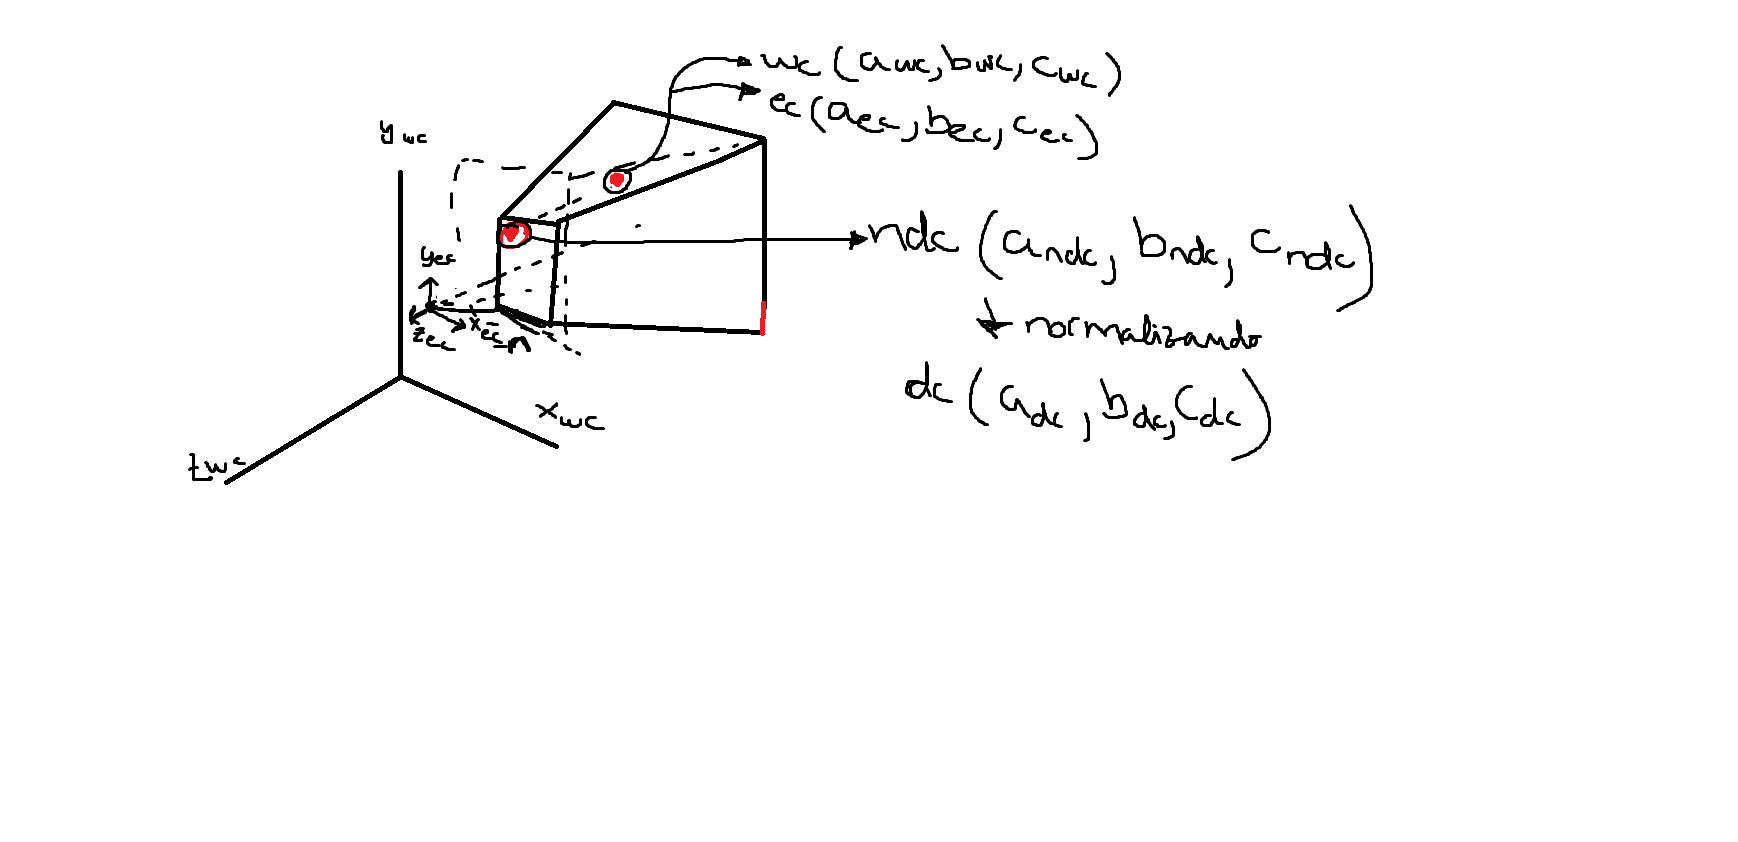 wc (awc, bwc, cwc)
ec (aec, bec, cec)
ywc
yec
ndc (andc, bndc, cndc)
xec
-n
zec
normalizando
dc (adc, bdc, cdc)
xwc
zwc